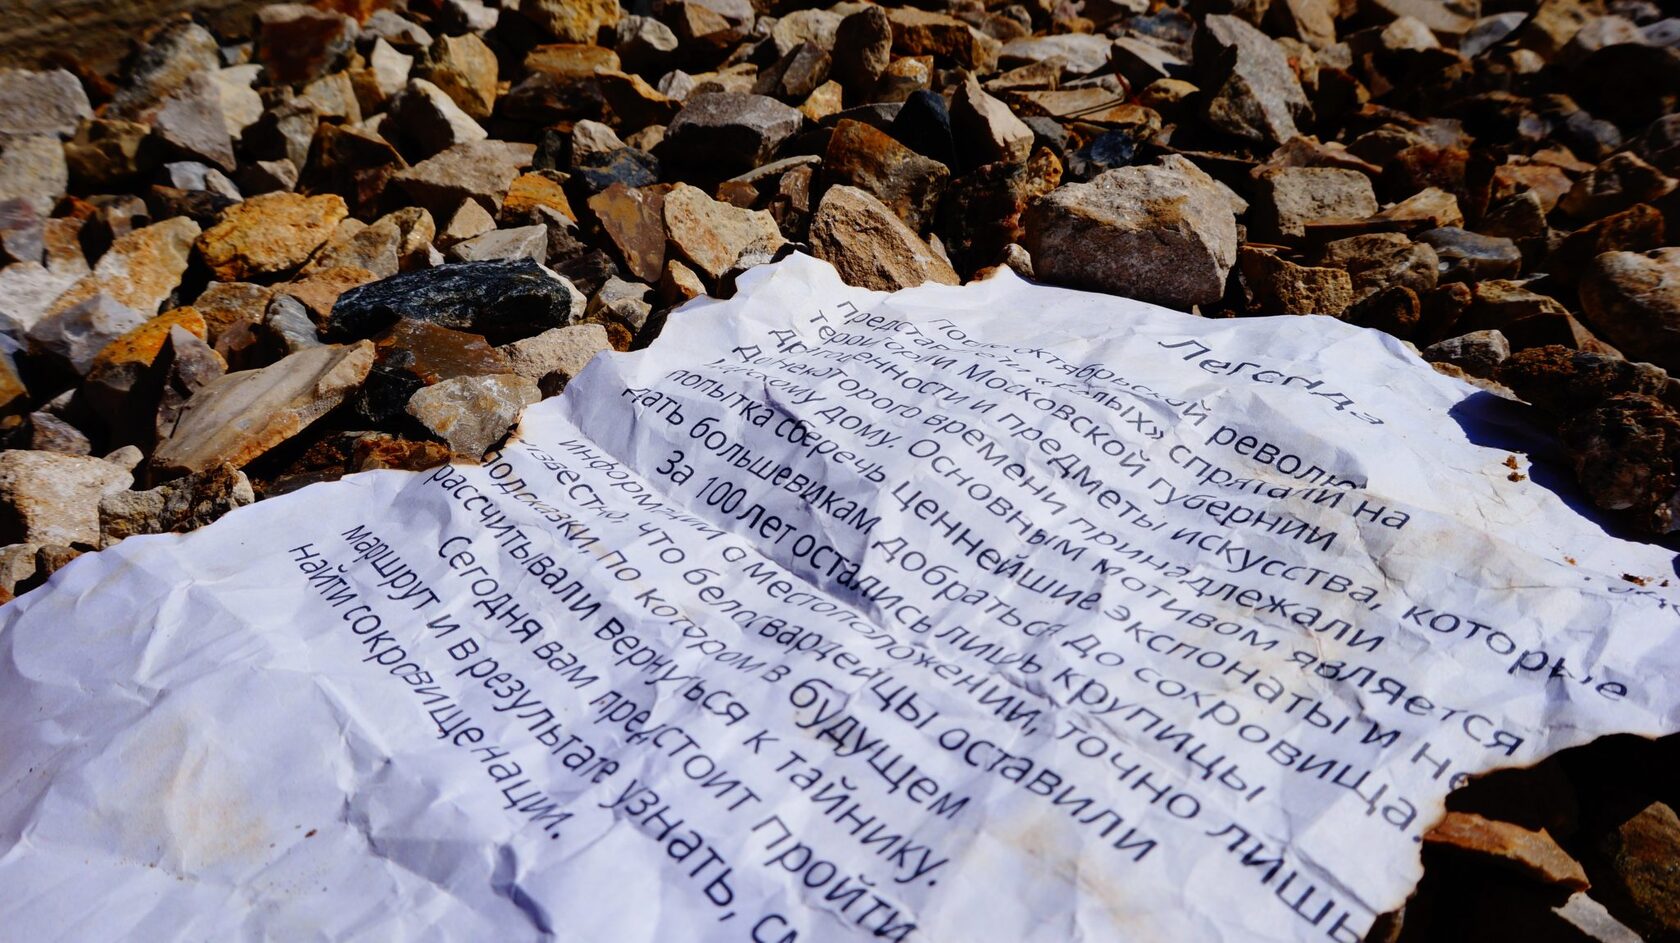 Легенда
После Октябрьской революции
представители «белых» спрятали на
территории Московской губернии
драгоценности и предметы искусства, которые
до некоторого времени принадлежали
Царскому дому. Основным мотивом является
попытка сберечь ценнейшие экспонаты и не
дать большевикам добраться до сокровища.
За 100 лет остались лишь крупицы
информации о местоположении, точно лишь
известно, что белогвардейцы оставили
подсказки, по которым в будущем
рассчитывали вернуться к тайнику.
Сегодня вам предстоит пройти
маршрут и в результате узнать,
найти сокровище нации.